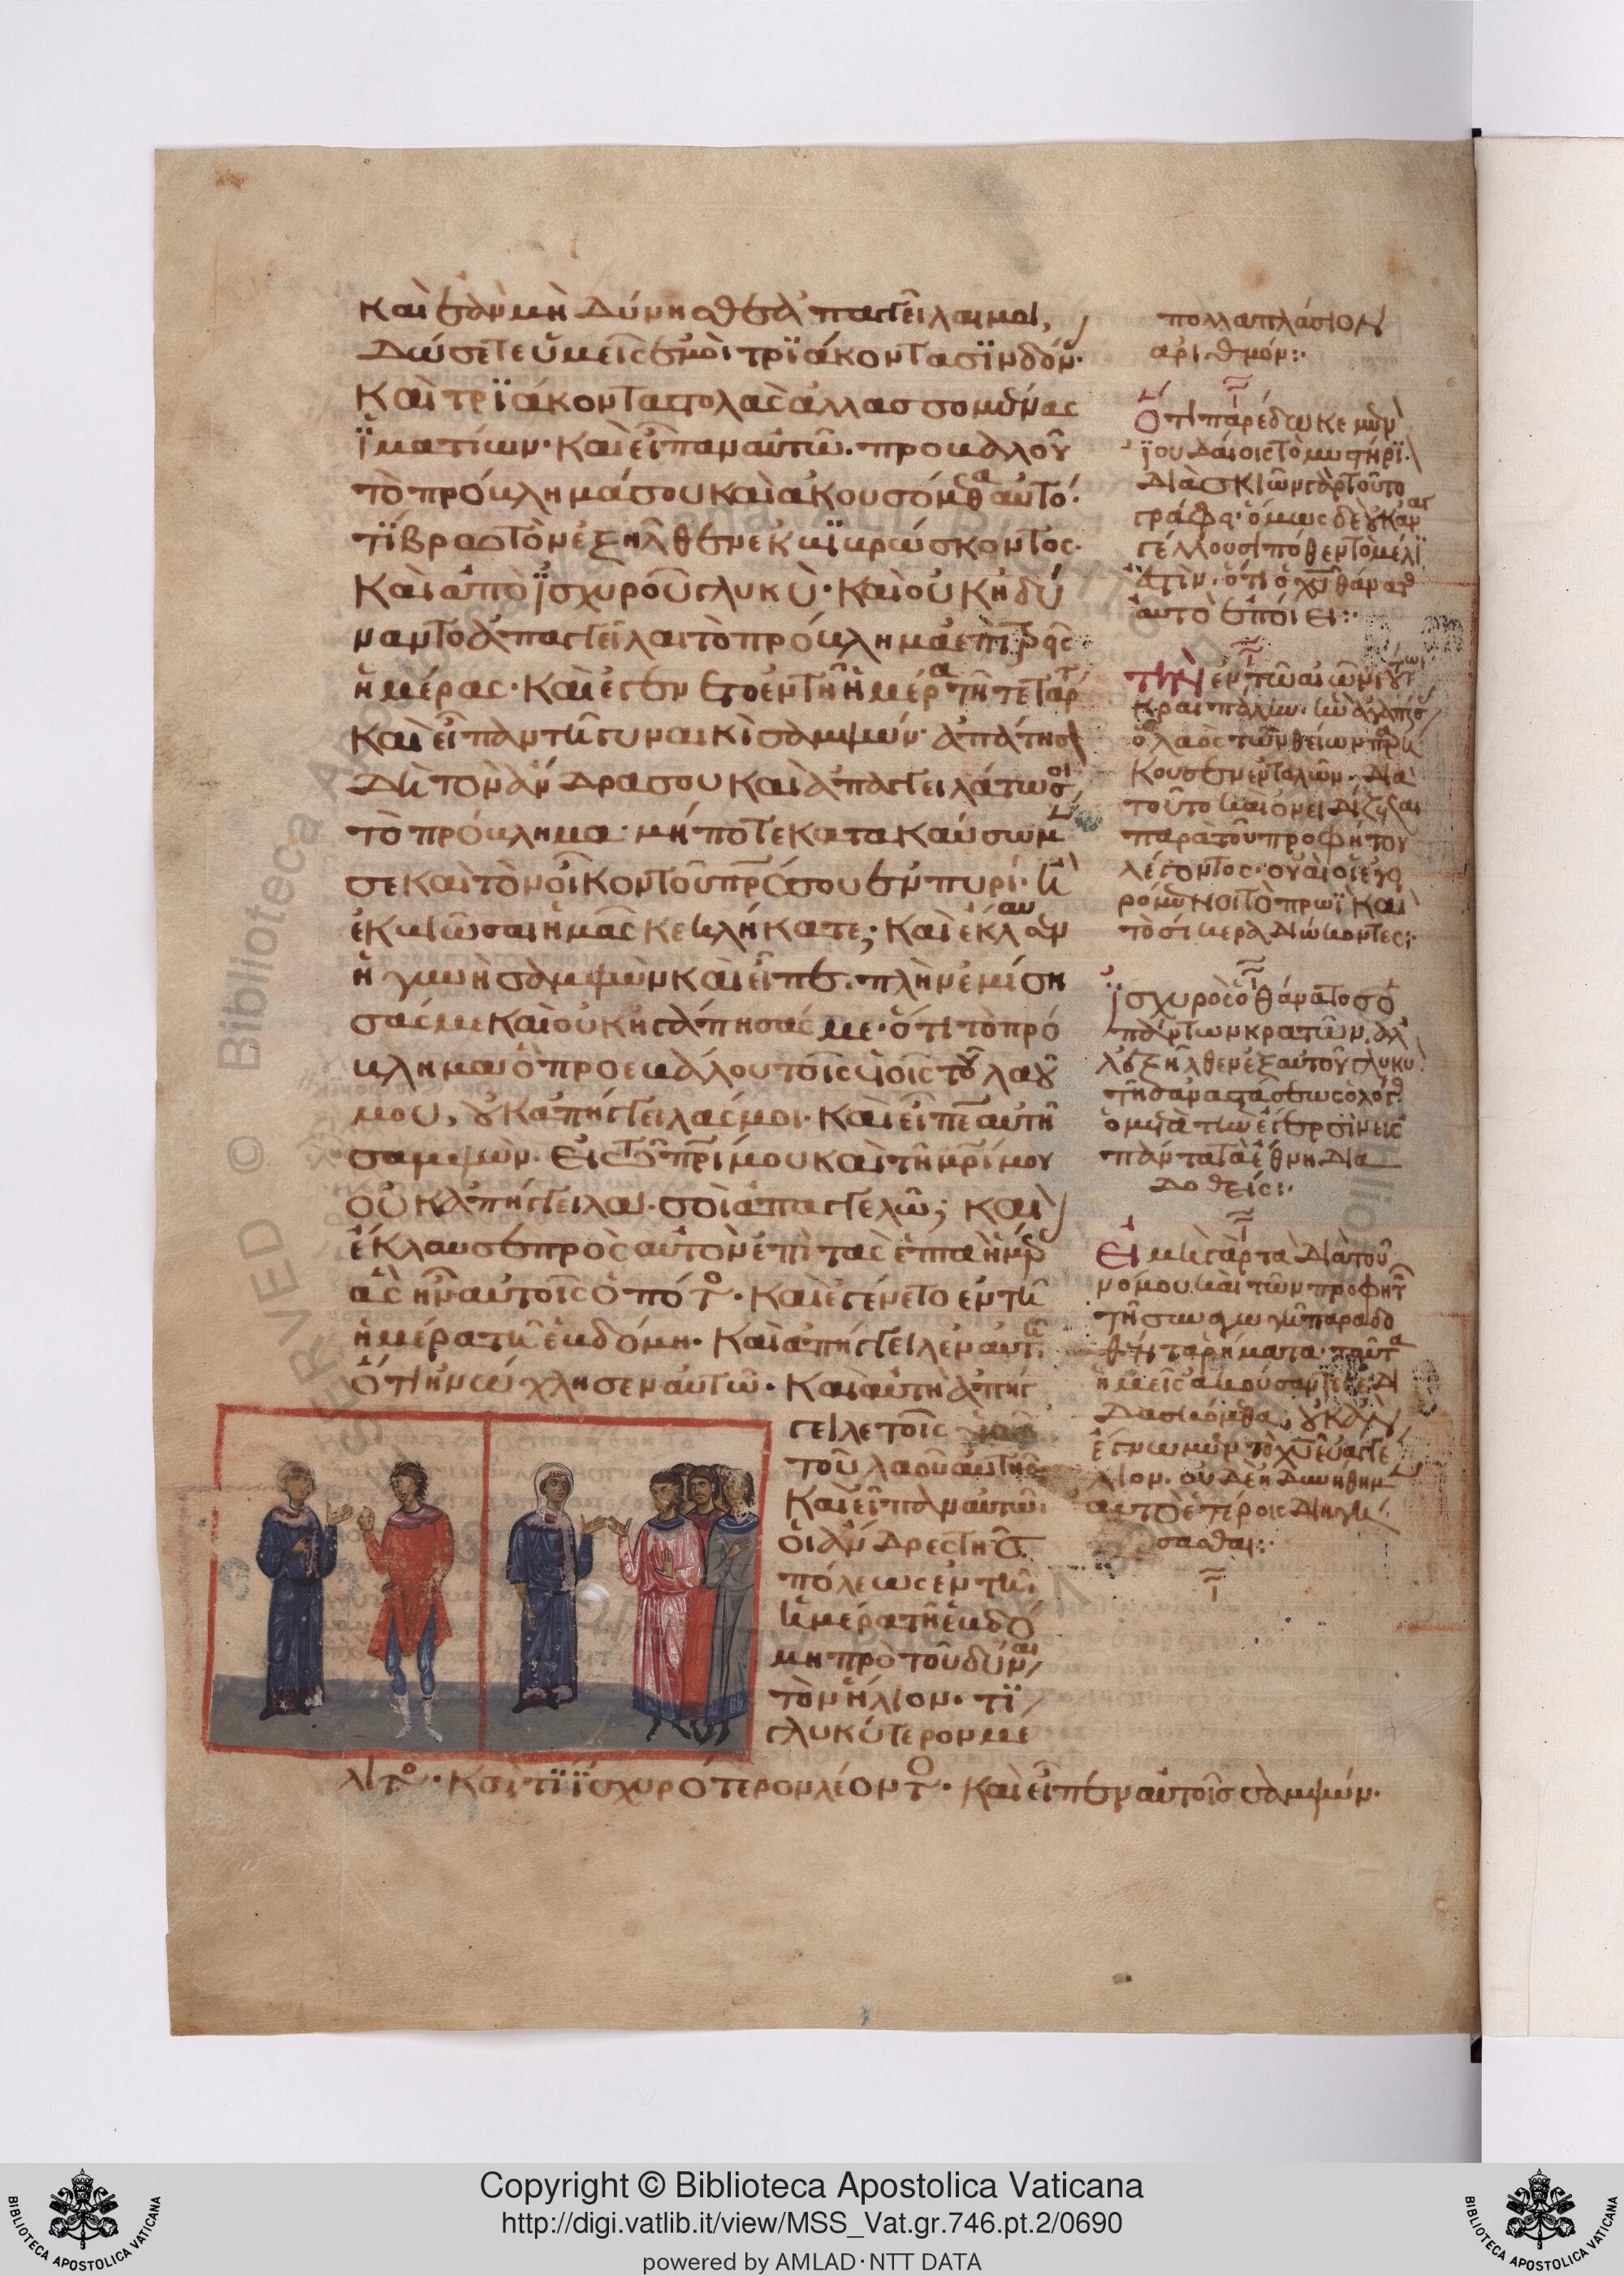 καὶ ἐὰν μὴ δύνησθε ἀπαγγεῖλαι μοι,
δώσετε ὑμεῖς ἐμοὶ τρϊάκοντα σϊνδόν·
καὶ τρϊάκοντα στολὰς ἀλλασσομένας
ϊματίων· καὶ εἶπαν αὐτῶ. προβαλοῦ
τὸ πρόβλημά σου καὶ ἀκουσόμεθα αὐτό·
τί βρωτὸν ἐξῆλθεν ἐκ βϊβρώσκοντος·
καὶ ἀπὸ ϊσχυροῦ γλυκὺ· καὶ οὐκ ἠδύ
ναντο ἀπαγγεῖλαι τὸ πρόβλημα ἐπὶ τρεῖς
ἡμέρας· καὶ ἐγένετο ἐν τῆ ἡμέρα τῆ τετάρτ
καὶ εἶπαν τῆ γυναικὶ σαμψών· ἀπάτησ
δὴ τὸν ἄνδρα σου καὶ ἀπαγγειλάτω σοι
τὸ πρόβλημα· μήποτε κατακαύσωμεν
σε καὶ τὸν οἶκον τοῦ πρς σου ἐν πυρί· ἢ
ἐκβιῶσαι ἡμᾶς κεκλήκατε; καὶ ἔκλαυσεν
ἡ γυνὴ σαμψὼν καὶ εἶπε. πλὴν ἐμίση
σάς με καὶ οὐκ ἠγάπησάς με· ὅτι τὸ πρό
βλημα ὃ προεβάλου τοῖς υἱοῖς τοῦ λαοῦ
μου, οὐκ ἀπήγγειλάς μοι· καὶ εἶπε αὐτῆ
σαμψὼν· εἰ τῶ πρί μου καὶ τῆ μρί μου
οὐκ ἀπήγγειλα· σοὶ ἀπαγγελῶ; καὶ
ἔκλαυσε πρὸς αὐτὸν ἐπὶ τὰς ἑπτὰ ἡμέρ
ας ἃς ἦν αὐτοῖς ὁ πότος· καὶ ἐγένετο ἐν τῆ
ἡμέρα τῆ ἑβδόμη· καὶ ἀπήγγειλεν αὐτῆ
ὅτι ἠνώχλησεν αὐτῶ· καὶ αὐτὴ ἀπήγ
γειλε τοῖς υἱοῖς
τοῦ λαοῦ αὐτῆς
καὶ εἶπαν αὐτῶ
οἱ ἄνδρες τῆς
πόλεως ἐν τῆ
ἡμέρα τῆ ἑβδό
μη πρὸ τοῦ δῦναι
τὸν ἥλιον· τί
γλυκύτερον μέ
λιτος· καὶ τί ϊσχυρότερον λέοντος· καὶ εἶπεν αὐτοῖς σαμψών·
πολλαπλάσιον
ἀριθμόν:·
Ὅτι παρέδωκε μὲν
ϊουδαίοις τὸ μυστήρι
διὰ σκιῶν γὰρ τοῦτο
γράφει· ὅμως δὲ οὐκ ἀναγ
γέλλουσι πόθεν τὸ μέλϊ
ἐστίν· ὅτι ὁ χυ θάνατος
αὐτὸ ἐποίει:·
Τὴν ἐν τῶ αἰῶνι τούτω
ὁ λαὸς τῶν θείων παρή
κουσεν ἐντολῶν· διὰ
τοῦτο καὶ ὀνειδίζεται
παρὰ τοῦ προφήτου
λέγοντος· οὐαὶ οἱ ἐγει
ρόμενοι τὸ πρωῒ καὶ
τὸ σίκερα διώκοντες:·
ϊσχυρὸς ὁ θάνατος ὁ
πάντων κρατῶν. ἀλ
λ' ἐξῆλθεν ἐξ αὐτοῦ γλυκύ
τῆς ἀναστάσεως ὁ λόγος
ὁ μετὰ τὴν ἔγερσιν εἰς
πάντα τὰ ἔθνη δια
δοθείς:·
Εἰ μὴ γὰρ τὰ διὰ τοῦ
νόμου καὶ τῶν προφητ
τῆ συναγωγῆ παραδο
θέντα ῥήματα· ταῦτα
ἡμεῖς ἀκούσαντες ἐδι
δασκόμεθα, οὐκ ἂν
ἔγνωμεν τὸ χυ εὐαγγέ
λιον· οὐδὲ ἠδυνήθημεν
αὐτὸ ἑτέροις διηγή
σασθαι:·
Copyright © Biblioteca Apostolica Vaticana
http://digi.vatlib.it/view/MSS_Vat.gr.746.pt.2/0690
powered by AMLAD·NTT DATA
BIBLIOTECA APOSTOLICA VATICANA
BIBLIOTECA APOSTOLICA VATICANA